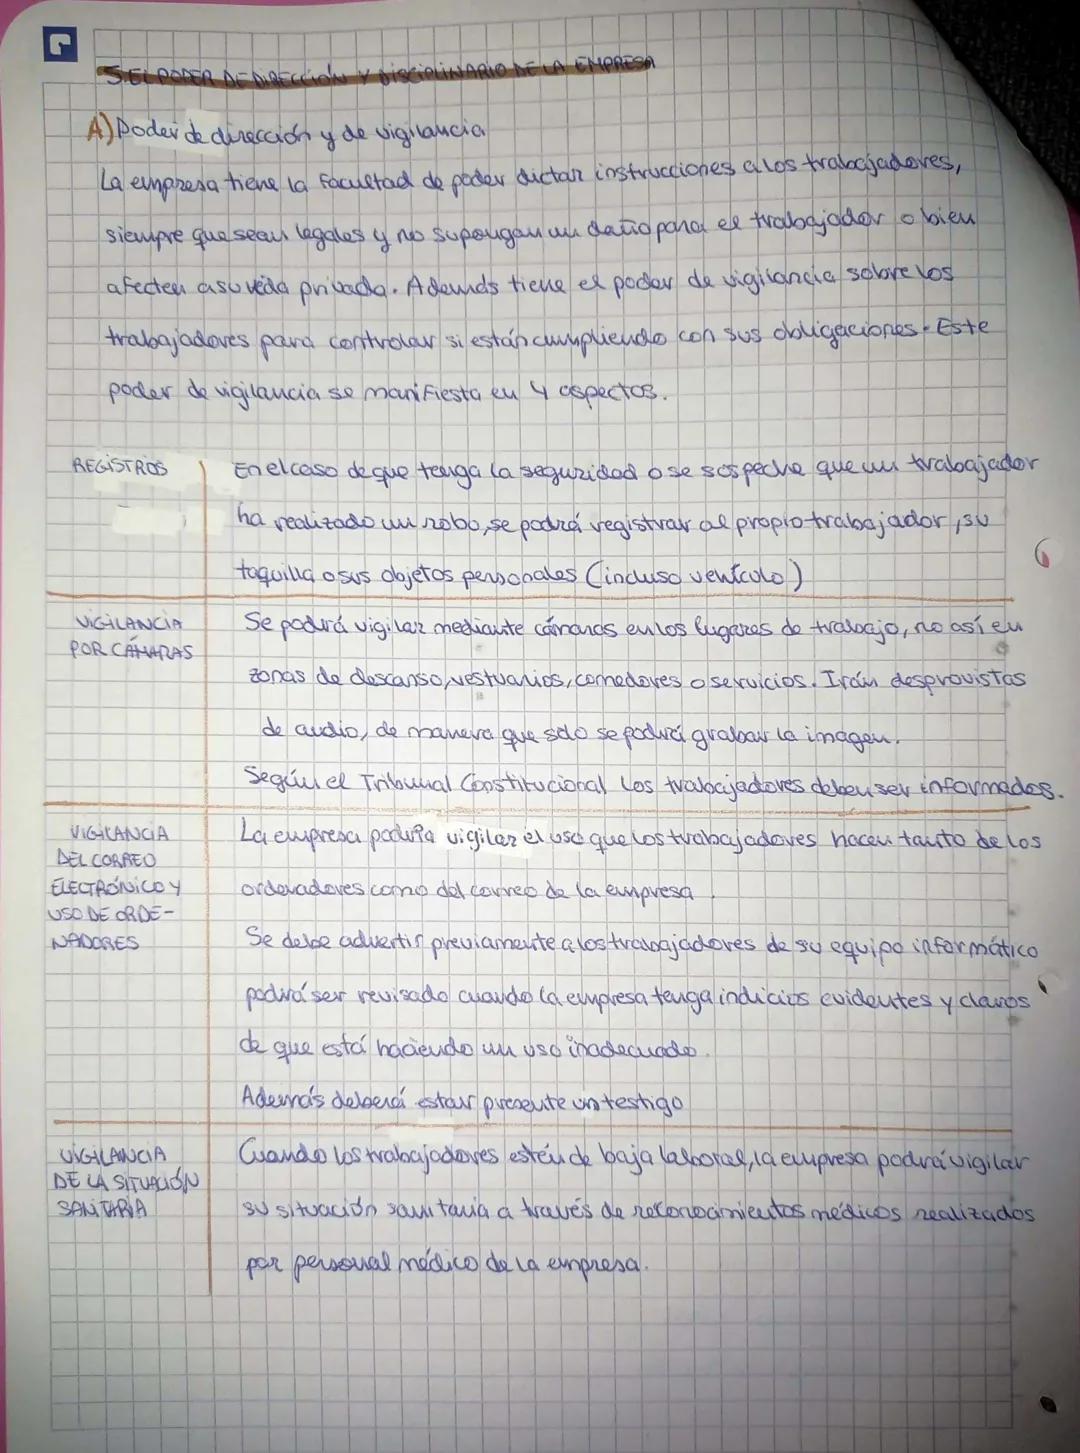 5. EL PODER DE DIRECCIÓN Y DISCIPLINARIO DE LA EMPRESA
A) Poder de dirección y de vigilancia
La empresa tiene la facultad de poder dictar instrucciones a los trabajadores,
siempre que sean legales y no supongan un daño para el trabajador o bien
afecten a su vida privada. Además tiene el poder de vigilancia sobre los
trabajadores para controlar si están cumpliendo con sus obligaciones. Este
poder de vigilancia se manifiesta en 4 aspectos.
REGISTROS
En el caso de que tenga la seguridad o se sospeche que un trabajador
ha realizado un robo, se podrá registrar al propio trabajador, su
taquilla o sus objetos personales (incluso vehículo)
VIGILANCIA
POR CÁMARAS
Se podrá vigilar mediante cámaras en los lugares de trabajo, no así en
zonas de descanso, vestuarios, comedores o servicios. Irán desprovistas
de audio, de manera que sólo se podrá grabar la imagen.
Según el Tribunal Constitucional los trabajadores deben ser informados.
VIGILANCIA
DEL CORREO
ELECTRÓNICO Y
USO DE ORDE-
NADORES
La empresa podría vigilar el uso que los trabajadores hacen tanto de los
ordenadores como del correo de la empresa.
Se debe advertir previamente a los trabajadores de su equipo informático
podrá ser revisado cuando la empresa tenga indicios evidentes y claros
de que está haciendo un uso inadecuado.
Además deberá estar presente un testigo
VIGILANCIA
DE LA SITUACIÓN
SANITARIA
Cuando los trabajadores estén de baja laboral, la empresa podrá vigilar
su situación sanitaria a través de reconocimientos médicos realizados
por personal médico de la empresa.